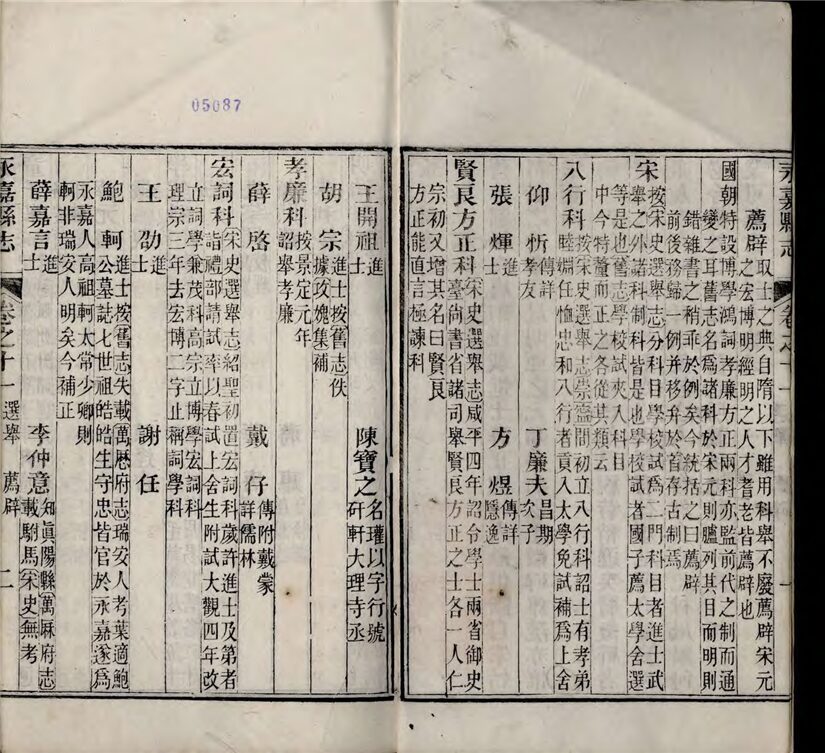 永嘉縣志 卷之十一 一
薦辟 取士之典自隋以下雖用科舉不廢薦辟宋元
之宏博明經明之人才耆老皆薦辟也
國朝特設博學鴻詞孝廉方正兩科亦監前代之制而通
變之耳舊志名爲諸科於宋元則臚列其目而明則
錯雜書之稍乖於例矣今統括之曰薦辟
前後務歸一例并移弁於首存古制焉
宋 按宋史選舉志分科目學校試爲二門科目者進士武
舉之外諸科制科皆是也學校試者國子薦太學舍選
等是也舊志學校試夾入科目
中今特釐而正之各從其類云
八行科 按宋史選舉志崇寧間初立八行科詔士有孝弟
睦婣任恤忠和八行者貢入太學免試補爲上舍
仰忻 傳詳孝友 丁廉夫 昌期次子
張煇 進士 方煜 傳詳隱逸
賢良方正科 宋史選舉志咸平四年詔令學士兩省御史
臺尚書省諸司舉賢良方正之士各一人仁
宗初又增其名曰賢良
方正能直言極諫科
05087
王開祖 進士 陳寶之 名瓘以字行號
硏軒大理寺丞
胡宗 進士按舊志佚
據攻媿集補
孝廉科 按景定元年
詔舉孝廉
薛啓 戴仔 傳附戴蒙
詳儒林
宏詞科 宋史選舉志紹聖初置宏詞科歲許進士及第者
詣禮部請試率以春試上舍生附試大觀四年改
立詞學兼茂科高宗立博學宏詞科
理宗三年去宏博二字止稱詞學科
王劭 進士 謝任
鮑軻 進士按舊志失載萬厯府志瑞安人考葉適鮑
公墓誌七世祖皓皓生守忠皆官於永嘉遂爲
永嘉人高祖軻太常少卿則
軻非瑞安人明矣今補正
薛嘉言 進士 李仲意 知眞陽縣萬厤府志
載駙馬宋史無考
永嘉縣志 卷之十一 選舉 薦辟 二